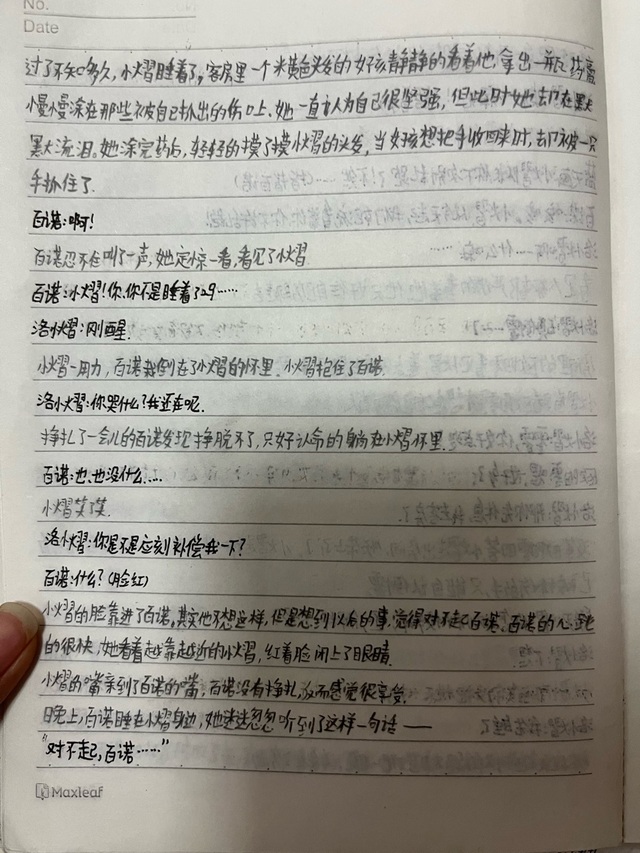 No.
Date
过了不知多久,小熠睡着了,客房里一个米黄色头发的女孩静静的看着他,拿出一瓶药膏
慢慢涂在那些被自己抓出的伤口上。她一直认为自己很坚强,但此时她却在默
默流泪。她涂完药后,轻轻的摸了摸小熠的头发,当女孩想把手收回来时,却被一只
手抓住了.
百诺:啊!
百诺忍不住叫了一声,她定惊一看,看见了小熠
百诺:小熠!你.你不是睡着了吗……
洛小熠:刚醒.
小熠一用力,百诺栽倒在了小熠的怀里.小熠抱住了百诺.
洛小熠:你哭什么?我还在呢.
挣扎了一会儿的百诺发现挣脱不了,只好认命的躺在小熠怀里.
百诺:也.也没什么……
小熠笑笑.
洛小熠:你是不是应该补偿我一下?
百诺:什么?(脸红)
小熠的脸靠进了百诺,其实他不想这样,但是想到以前的事,觉得对不起百诺.百诺的心跳
的很快,她看着越靠越近的小熠,红着脸闭上了眼睛.
小熠的嘴亲到了百诺的嘴,百诺没有挣扎,反而感觉很享受.
晚上,百诺睡在小熠身边,她迷迷忽忽听到了这样一句话——
“对不起,百诺……”
Maxleaf